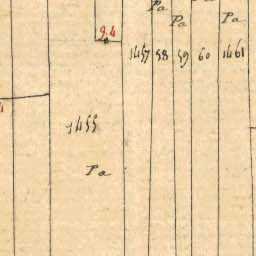 Pa
Pa
Pa
24
1457 58 59 60 1461
1455
Pa